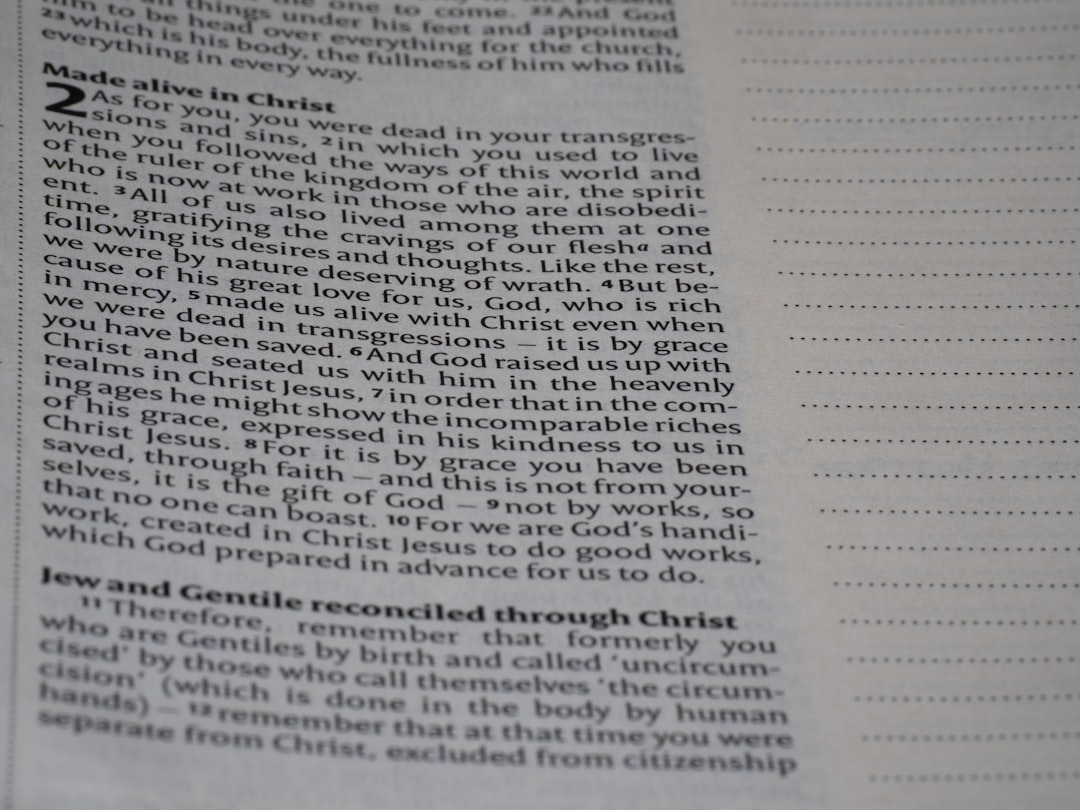 things under his feet and appointed
the one to come. 22 And God
him to be head over everything for the church,
23 which is his body, the fullness of him who fills
everything in every way.
Made alive in Christ
2 As for you, you were dead in your transgres-
sions and sins, 2 in which you used to live
when you followed the ways of this world and
of the ruler of the kingdom of the air, the spirit
who is now at work in those who are disobedi-
ent. 3 All of us also lived among them at one
time, gratifying the cravings of our flesh a and
following its desires and thoughts. Like the rest,
we were by nature deserving of wrath. 4 But be-
cause of his great love for us, God, who is rich
in mercy, 5 made us alive with Christ even when
we were dead in transgressions – it is by grace
you have been saved. 6 And God raised us up with
Christ and seated us with him in the heavenly
realms in Christ Jesus, 7 in order that in the com-
ing ages he might show the incomparable riches
of his grace, expressed in his kindness to us in
Christ Jesus. 8 For it is by grace you have been
saved, through faith – and this is not from your-
selves, it is the gift of God – 9 not by works, so
that no one can boast. 10 For we are God's handi-
work, created in Christ Jesus to do good works,
which God prepared in advance for us to do.
Jew and Gentile reconciled through Christ
11 Therefore, remember that formerly you
who are Gentiles by birth and called 'uncircum-
cised' by those who call themselves 'the circum-
cision' (which is done in the body by human
hands) – 12 remember that at that time you were
separate from Christ, excluded from citizenship